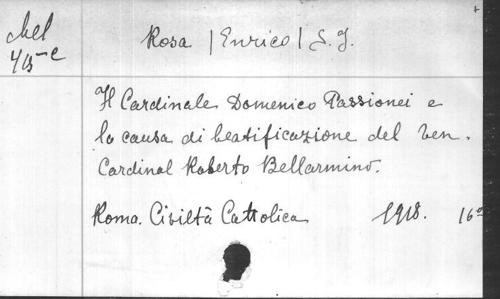 Rosa | Enrico | S. J.
Il Cardinale Domenico Passionei e
la causa di beatificazione del ven.
Cardinal Roberto Bellarmino.
Roma. Civiltà Cattolica 1918. 16º